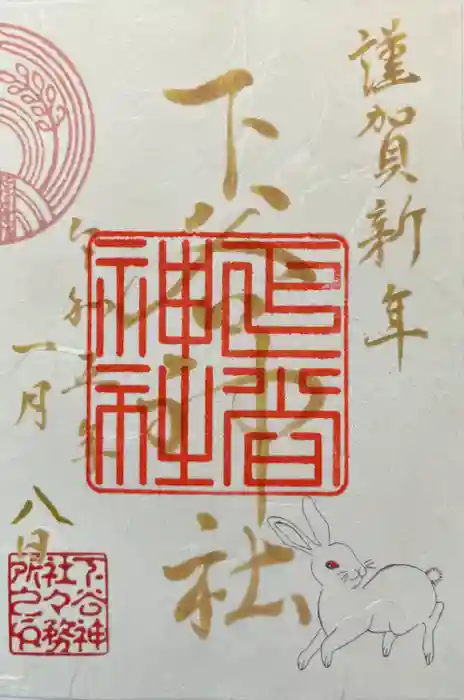 謹賀新年
下谷神社
令和五年
一月
八日
下谷神社
下谷神
社々務
所之印